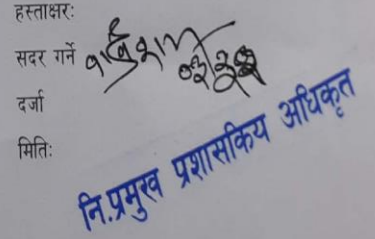 हस्ताक्षर:
सदर गर्ने
दर्जा
मिति:
नि.प्रमुख प्रशासकिय अधिकृत